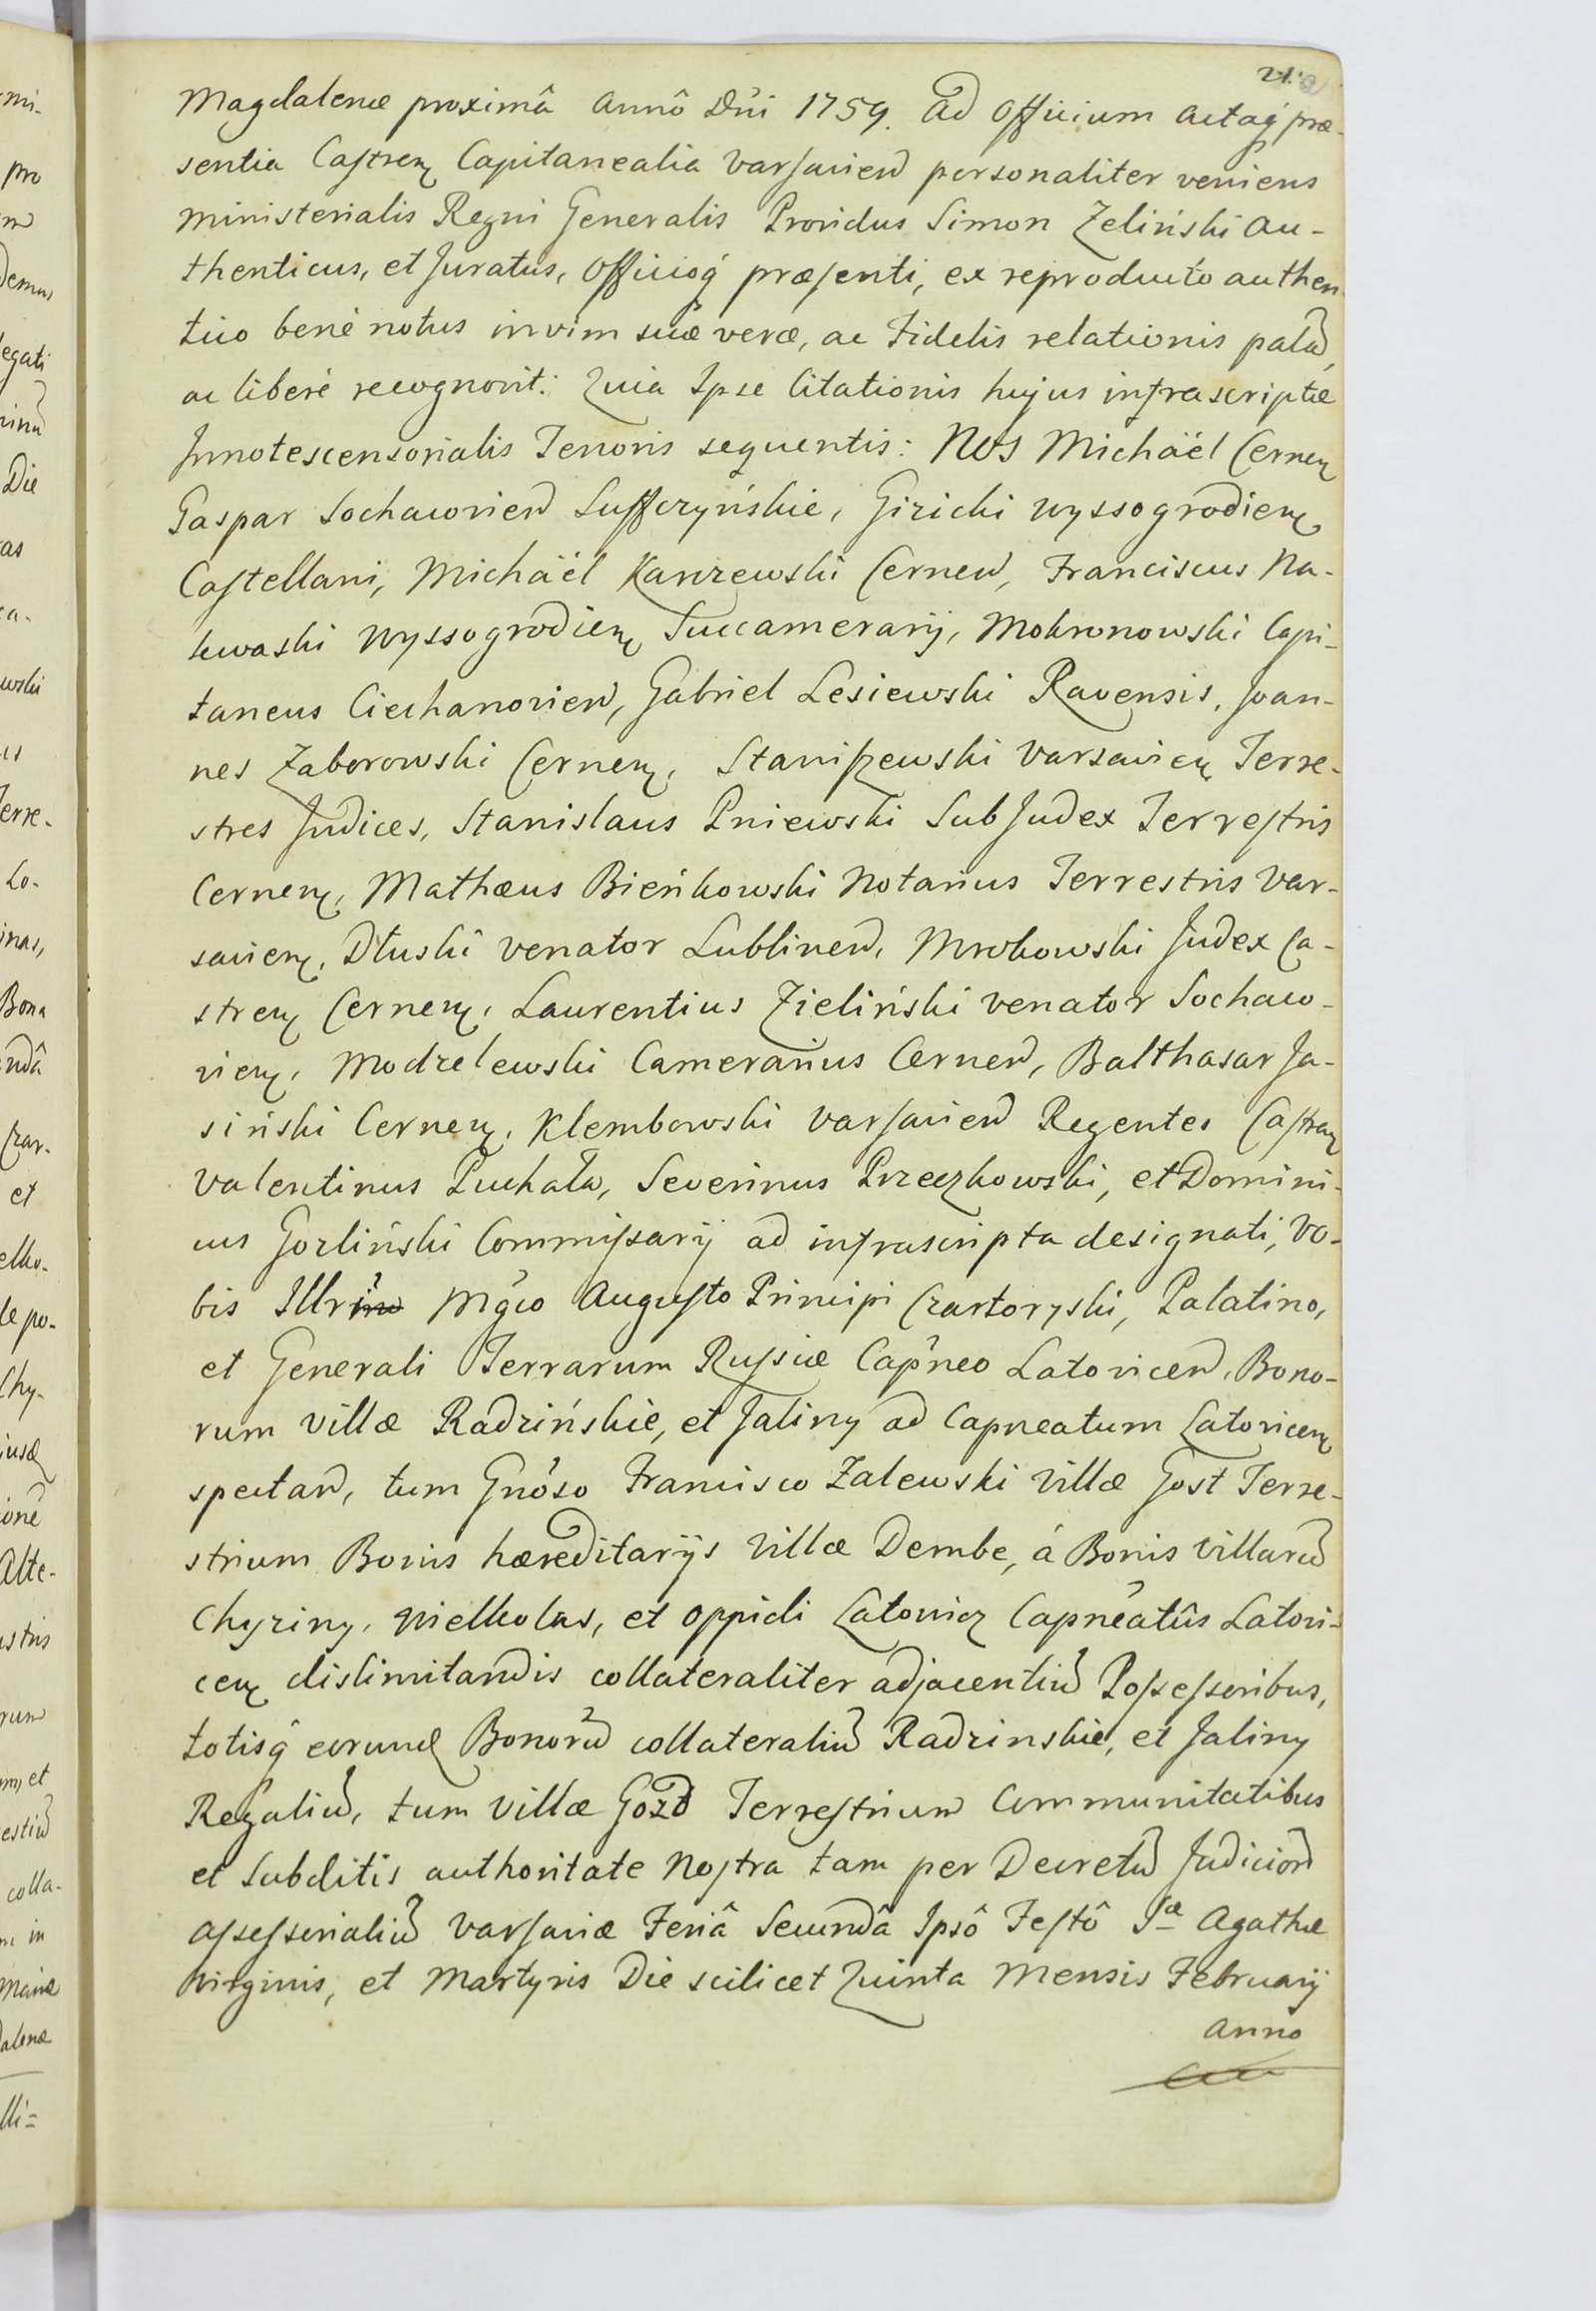 21.
Magdalenæ proximâ Annô Dni 1759. Ad Officium Actaq̃ præ-
sentia Castreñ Capitanealia Varsavień personaliter veniens
Ministerialis Regni Generalis Providus Simon Zeliński Au-
thenticus, et Juratus, Officioq̃ præsenti, ex reproducto authen
tico benè notus in vim suæ veræ, ac Fidelis relationis palã,
ac liberè recognovit: Quia Ipse Citationis hujus infrascriptæ
Innotescensorialis Tenoris sequentis: Nos Michäél Cerneñ
Gaspar Sochacovień Suffczyńskie, Giricki Wyssogrodieñ
Castellani, Michäél Karczewski Cerneń, Franciscus Na-
kwaski Wyssogrodieñ Succamerarij, Mokronowski Capi-
taneus Ciechanovień, Gabriel Lesiewski Ravensis, Joan-
nes Zaborowski Cerneñ, Staniszewski Varsavieñ Terre-
stres Judices, Stanislaus Pniewski SubJudex Terrestris
Cerneñ, Mathæus Bieńkowski Notarius Terrestris Var-
savieñ, Dłuski Venator Lublineń, Mrokowski Judex Ca-
streñ Cerneñ, Laurentius Zieliński Venator Sochaco-
vieñ, Modzelewski Camerarius Cerneń, Balthasar Ja-
siński Cerneñ, Klembowski Varsavień Regentes Castreñ
Valentinus Puchała, Severinus Przeczkowski, et Domini-
cus Gozliński Commissarij ad infrascripta designati, Vo-
bis Illr̃i Mg̃co Augusto Principi Czartoryski, Palatino,
et Generali Terrarum Russiæ Cap̃neo Latoviceń, Bono-
rum Villæ Radzińskie, et Jaliny ad Capneatum Latoviceñ
spectań, tum Gnõso Francisco Zalewski Villæ Gost Terre-
strium Bonis hæreditarijs Villæ Dembe, á Bonis Villarũ
Chyziny, Wielkolas, et Oppidi Latowicz Capñeatûs Latovi-
ceñ dislimitandis collateraliter adjacentiũ Possessoribus,
totisq̃ eorund̃ Bonorũ collateraliũ Radzinskie, et Jaliny
Regaliũ, tum Villæ Gozd Terrestrium Communitatibus
et Subditis authoritate Nostra tam per Decretũ Judiciorũ
Assessorialiũ Varsaviæ Feriâ Secundâ Ipsô Festô Sæ Agathæ
Virginis, et Martyris Die scilicet Quinta Mensis Februarij
Anno